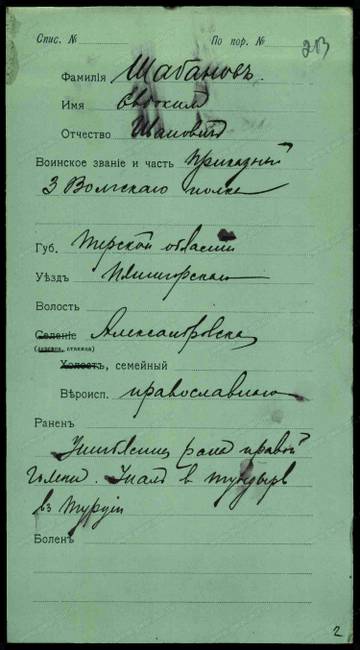 Спис. № По пор. № 213
Фамилія Шабановъ.
Имя Евдоким
Отчество
Воинское званіе и часть Приказный
3 Волгскаго полка
Губ. Терской области
Уѣздъ
Волость
Селеніе Александровска
(деревня, станица)
Холостъ, семейный
Вѣроисп. православнаго
Раненъ
рана правой
голени. Упалъ в
въ Турціи
Боленъ
2